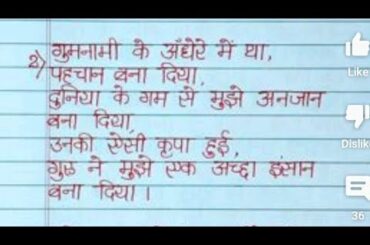 2) गुमनामी के अँधेरे में था,
पहचान बना दिया,
दुनिया के गम से मुझे अनजान
बना दिया,
उनकी ऐसी कृपा हुई,
गुरु ने मुझे एक अच्छा इंसान
बना दिया।
Like
Dislik
36